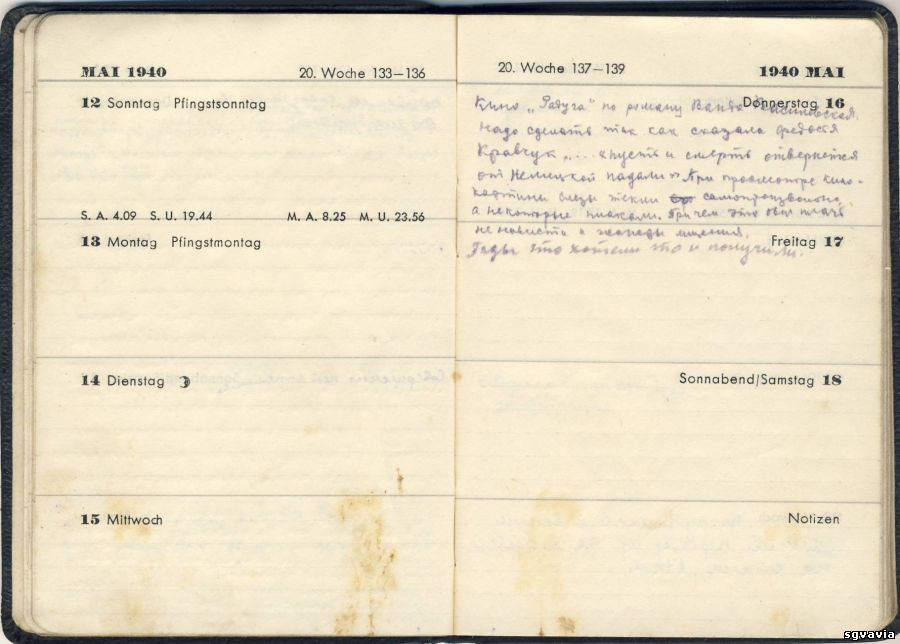 MAI 1940 20. Woche 133–136
12 Sonntag Pfingstsonntag
S. A. 4.09 S. U. 19.44 M. A. 8.25 M. U. 23.56
13 Montag Pfingstmontag
14 Dienstag
15 Mittwoch
20. Woche 137–139 1940 MAI
Donnerstag 16
Кино „Радуга" по роману Ванда
надо сделать так как сказала Федося
Кравчук „... и смерть отвернется
от Немецкой падали" При просмотре кино-
картины слезы текли самопроизвольно,
а некоторые плакали. Причем это был плач
не нависти и жажды мщения.
Гады что хотели то и получили.
Freitag 17
Sonnabend/Samstag 18
Notizen
sgvavia